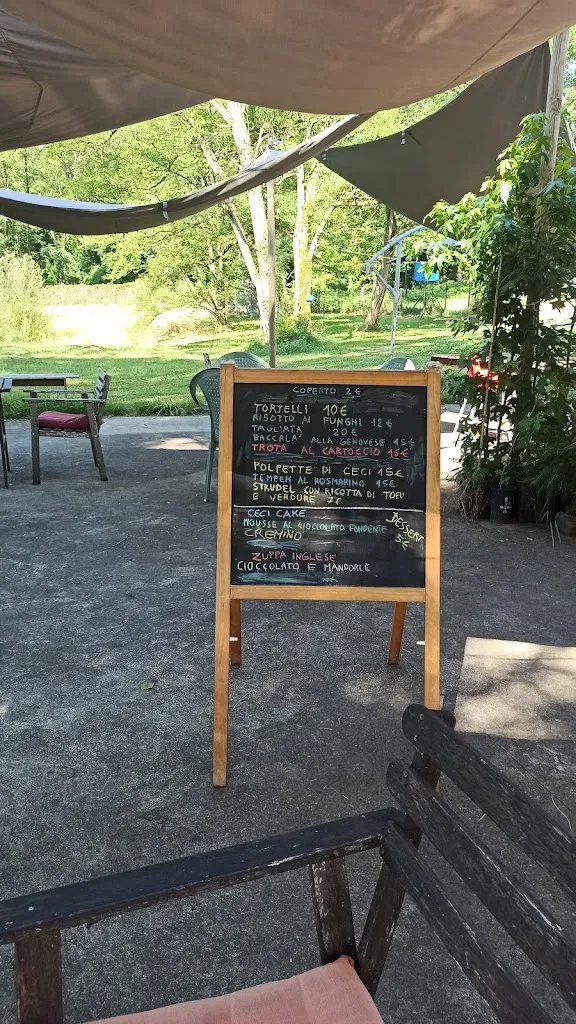 COPERTO 2€
TORTELLI 10€
RISOTTO AI FUNGHI 12€
TAGLIATA 20€
BACCALA' ALLA GENOVESE 15€
TROTA AL CARTOCCIO 16€
POLPETTE DI CECI 15€
TEMPEH AL ROSMARINO 15€
STRUDEL CON RICOTTA DI TOFU
E VERDURE 7€
CECI CAKE
MOUSSE AL CIOCCOLATO FONDENTE
CREMINO
DESSERT
5€
ZUPPA INGLESE
CIOCCOLATO E MANDORLE